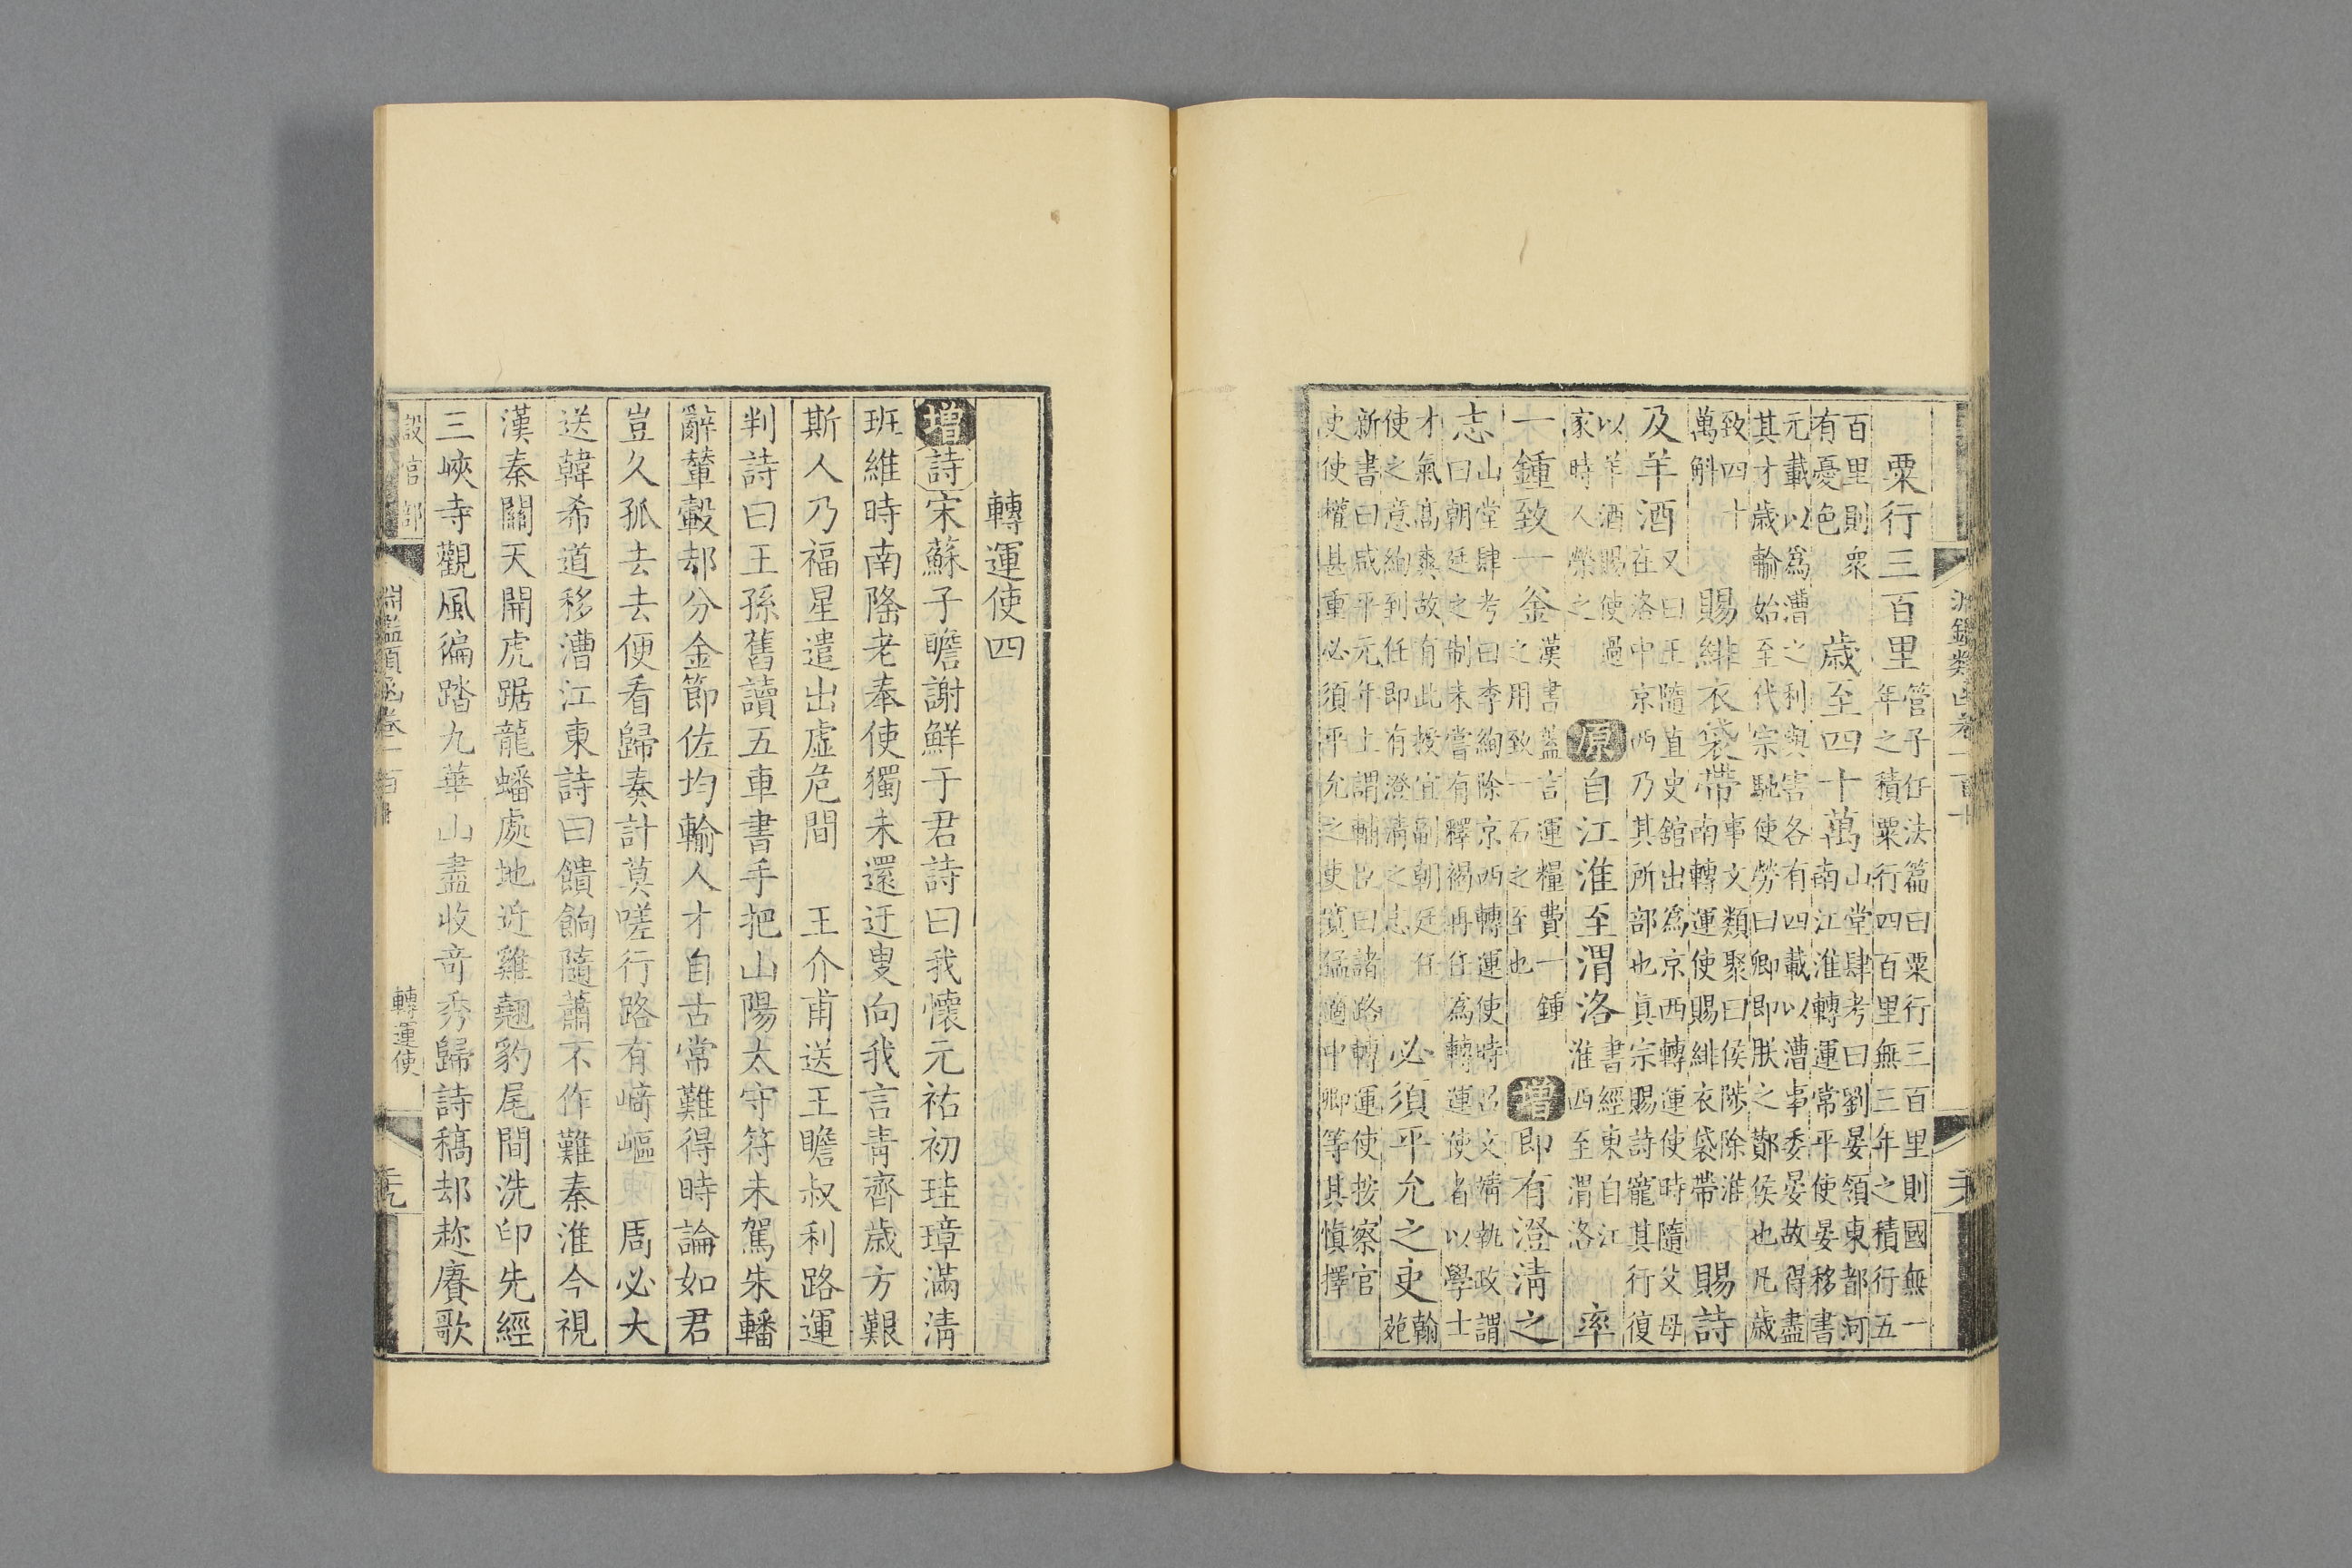 粟行三百里
管子任法篇曰粟行三百里則國無一
年之積粟行四百里無三年之積行五
百里則衆
有憂色
歳至四十萬
山堂肆考曰劉晏領東都河
南江淮轉運常平使晏移書
元載以爲漕之利與害各有四載以漕事委晏故得盡
其才歳輸始至代宗馳使勞曰卿即朕之酇侯也凡歳
致四十
萬斛
賜緋衣袋帶
事文類聚曰侯陟除淮
南轉運使賜緋衣袋帶
賜詩
及羊酒
又曰王隨直史舘出爲京西轉運使時隨父母
在洛中京西乃其所部也真宗賜詩寵其行復
以羊酒賜使過
家時人榮之
原
自江淮至渭洛
書經東自江
淮西至渭洛
率
十鍾致一釡
漢書葢言運糧費一鍾
之用致一石之至也
增
即有澄清之
志
山堂肆考曰李絢除京西轉運使時呂文靖執政謂
曰朝廷之制未嘗有釋褐再任爲轉運使者以學士
才氣髙爽故有此授宜副朝廷任
使之意絢到任即有澄清之志
必須平允之吏
翰
苑
新書曰咸平元年上謂輔臣曰諸路轉運使按察官
吏使權甚重必須平允之吏寛猛適中卿等其愼擇
轉運使四
增詩宋蘇子瞻謝鮮于君詩曰我懷元祐初珪璋滿清
班維時南隆老奉使獨未還迂叟向我言青齊歳方艱
斯人乃福星遣出虛危間　王介甫送王瞻叔利路運
判詩曰王孫舊讀五車書手把山陽太守符未駕朱轓
辭輦轂却分金節佐均輸人才自古常難得時論如君
豈久孤去去便看歸奏計莫嗟行路有﨑嶇　周必大
送韓希道移漕江東詩曰饋餉隨蕭不作難秦淮今視
漢秦關天開虎踞龍蟠處地近雞翹豹尾間洗印先經
三峽寺觀風徧踏九華山盡收奇秀歸詩稿却趂賡歌
設官部
淵鑑類函卷一百十
轉運使